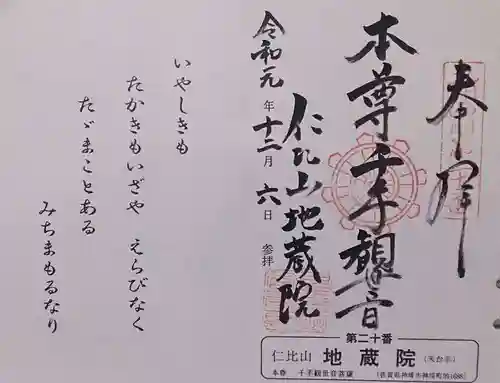 奉拝
本尊千手観音
仁比山地蔵院
令和元年十二月六日 参拝
第二十番
仁比山 地蔵院 (天台宗)
本尊 千手観世音菩薩
いやしきも
たかきもいざや えらびなく
たゞまことある
みちまもるなり